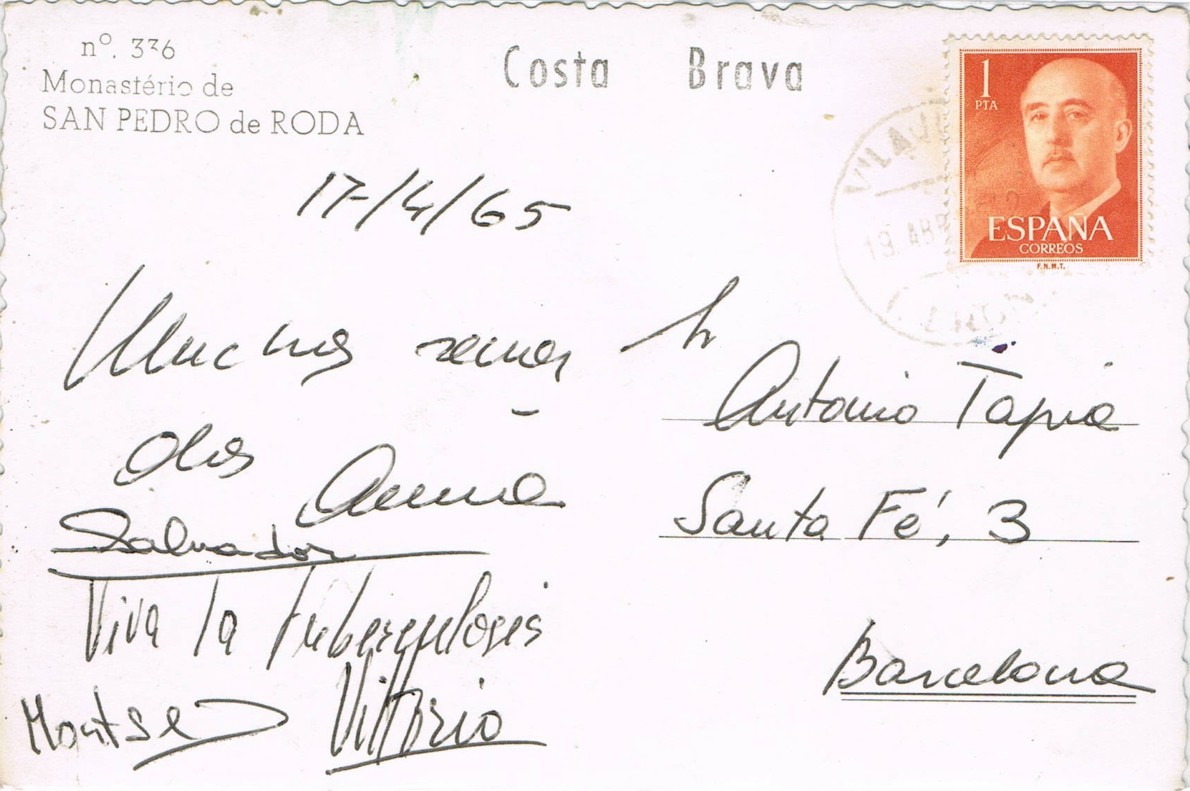 nº. 336
Monastério de
SAN PEDRO de RODA
Costa Brava
1
PTA
ESPAÑA
CORREOS
F.N.M.T.
VILAJ
19 ABR
17/4/65
Muchos
dos
Anna
Salvador
Viva la tuberculosis
Montse
Vittorio
Sr
Antonio Tapia
Santa Fé, 3
Barcelona